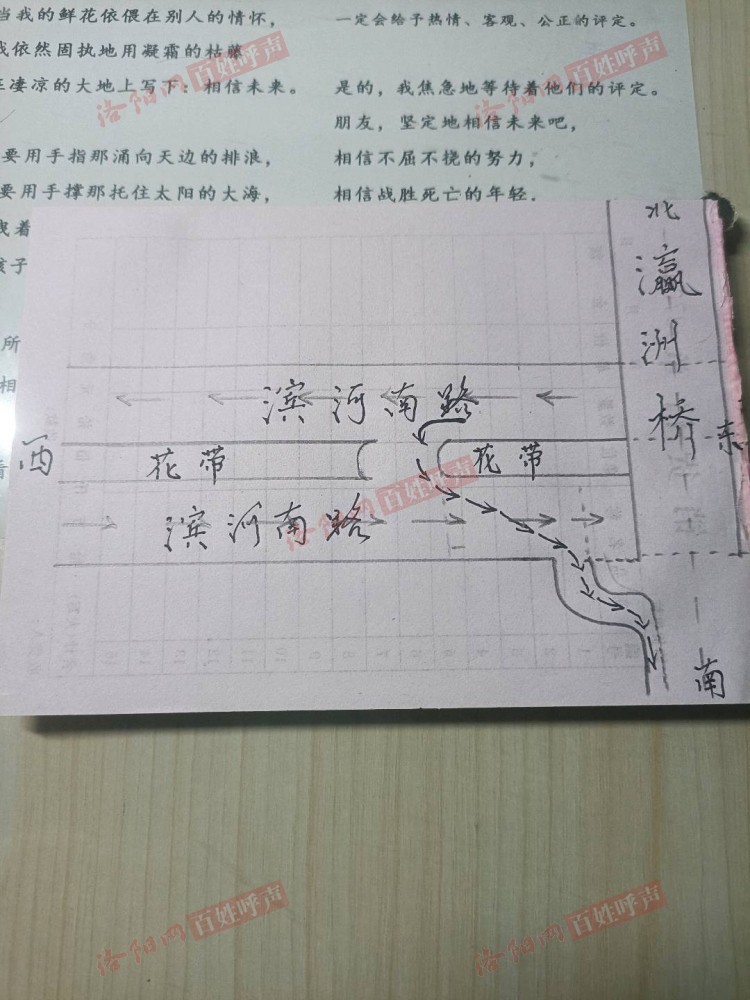 当我的鲜花依偎在别人的情怀，
我依然固执地用凝霜的枯藤
在凄凉的大地上写下：相信未来。
要用手指那涌向天边的排浪，
要用手撑那托住太阳的大海，
孩子
所
相
一定会给予热情、客观、公正的评定。
是的，我焦急地等待着他们的评定。
朋友，坚定地相信未来吧，
相信不屈不挠的努力，
相信战胜死亡的年轻，
洛阳网百姓呼声
洛阳网百姓呼声
北
瀛洲桥
滨河南路
西
花带
花带
东
滨河南路
南
洛阳网百姓呼声
洛阳网百姓呼声
洛阳网百姓呼声
洛阳网百姓呼声